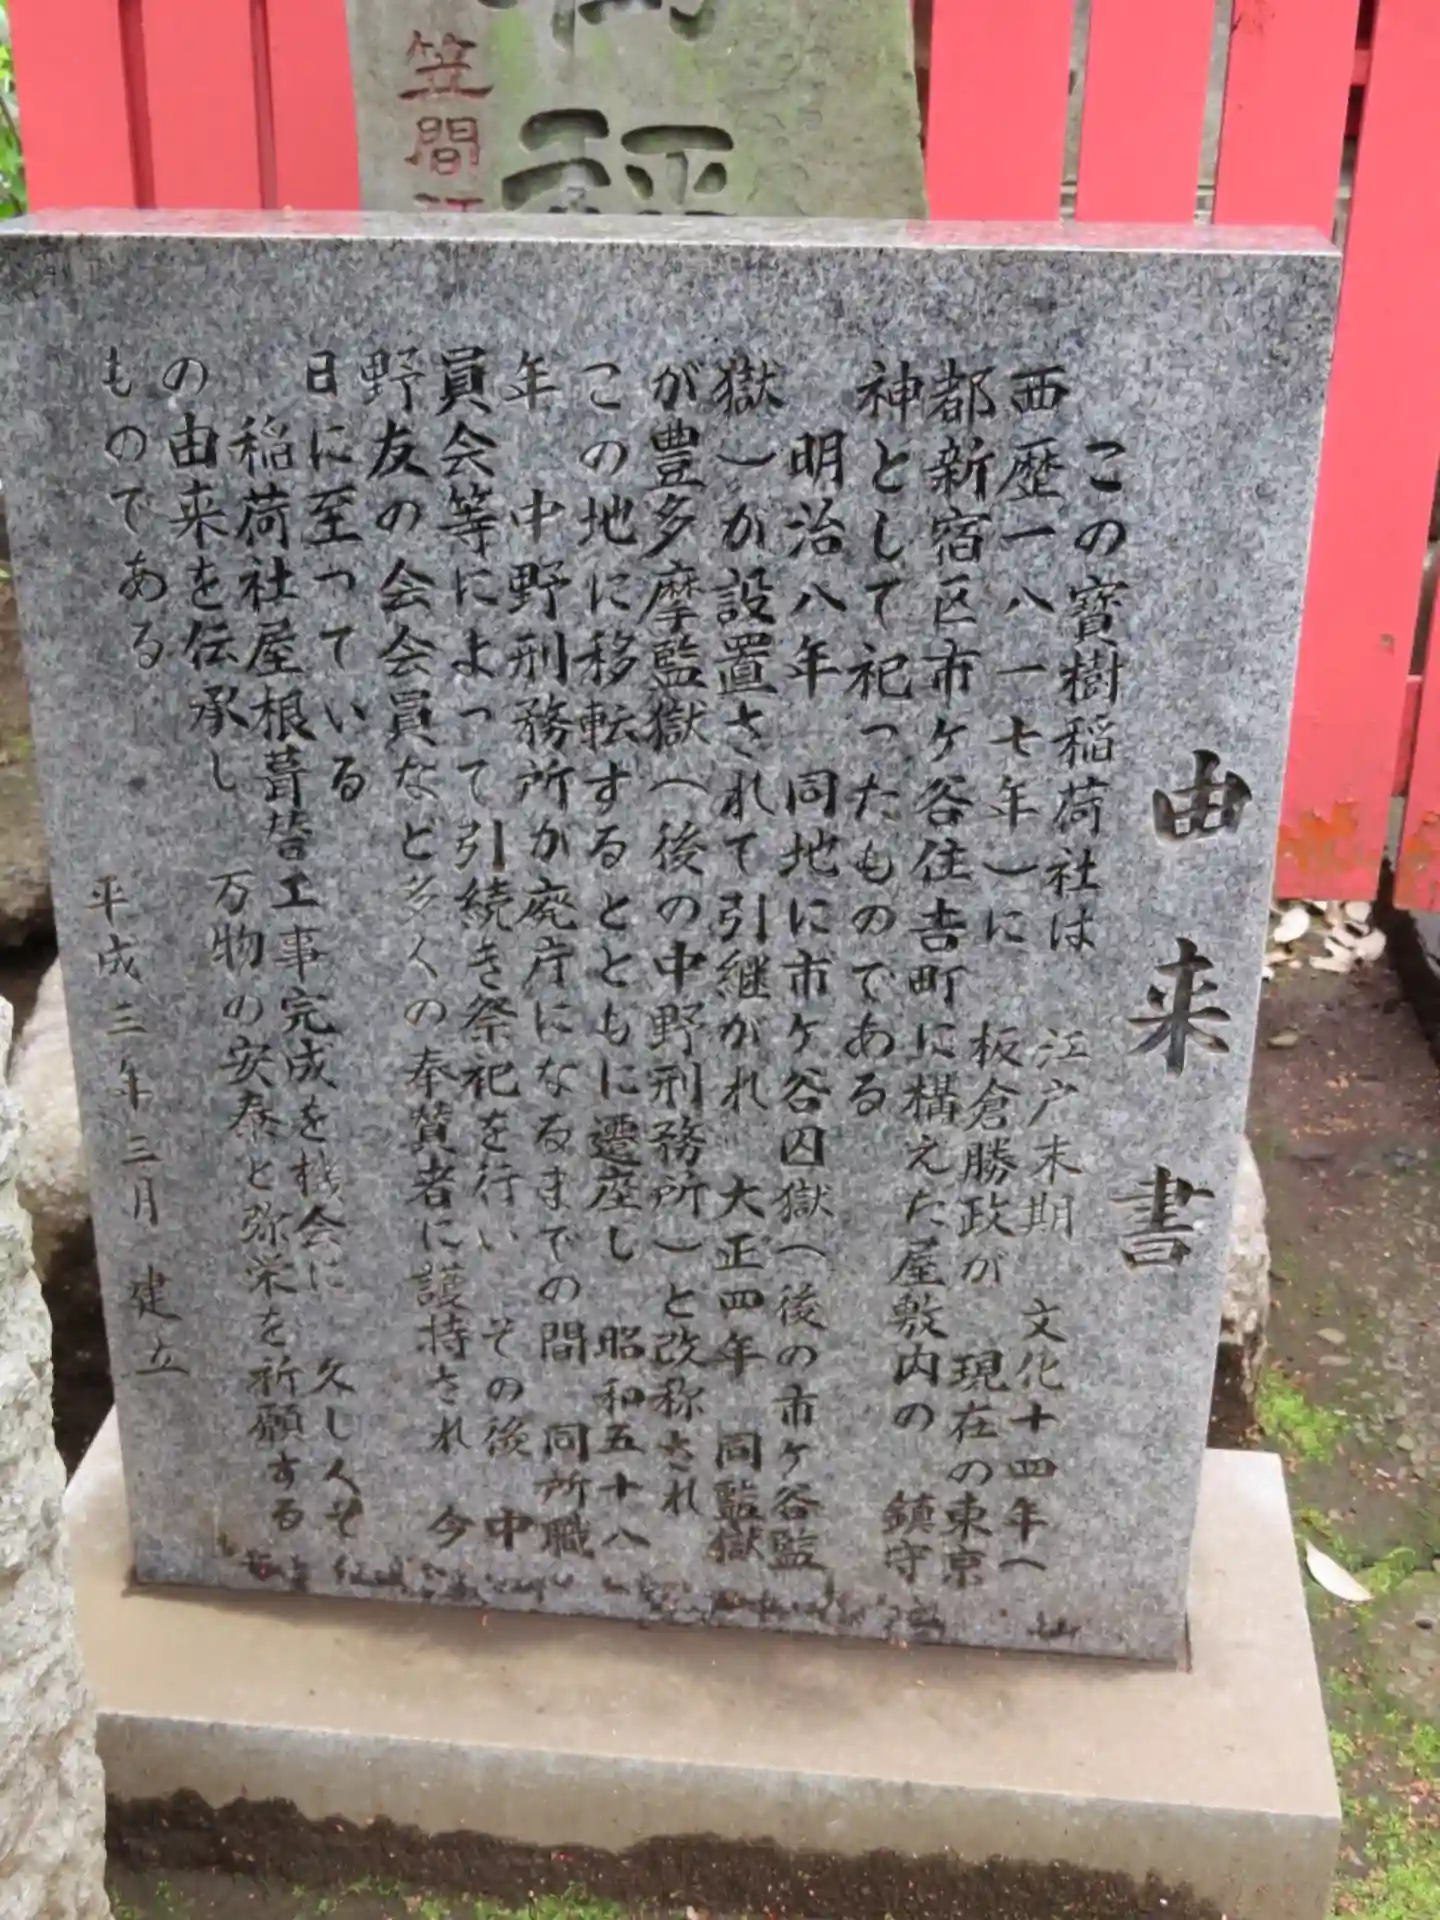 由来書
この寶樹稲荷社は　江戸末期　文化十四年（
西歴一八一七年）に　板倉勝政が　現在の東京
都新宿区市ケ谷住吉町に構えた屋敷内の　鎮守
神として祀ったものである
明治八年　同地に市ケ谷囚獄（後の市ケ谷監
獄）が設置されて引継がれ　大正四年　同監獄
が豊多摩監獄（後の中野刑務所）と改称され
この地に移転するとともに遷座し　昭和五十八
年　中野刑務所が廃庁になるまでの間　同所職
員会等によって引続き祭祀を行い　その後　中
野友の会会員など多くの奉賛者に護持され　今
日に至っている
稲荷社屋根葺替工事完成を機会に　久しくそ
の由来を伝承し　万物の安泰と弥栄を祈願する
ものである
平成三年三月　建立
笠間